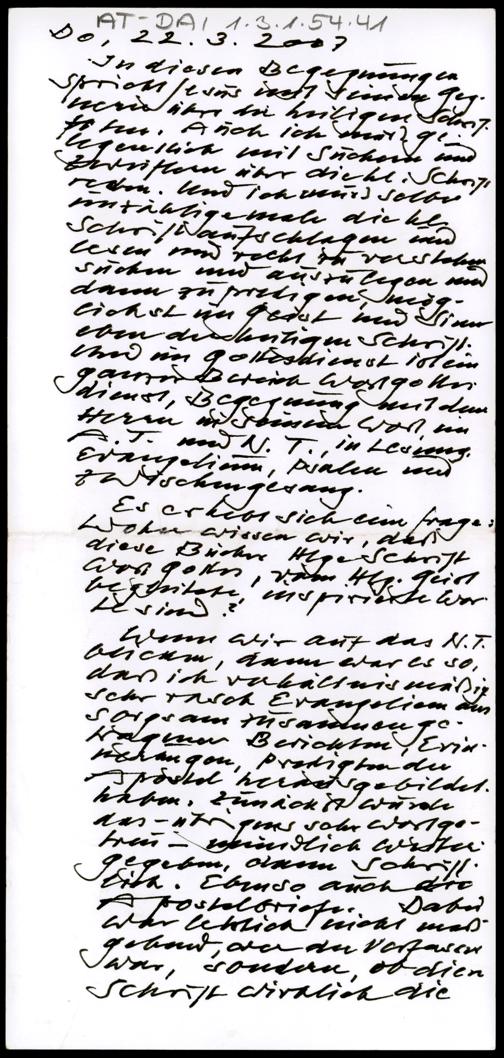 AT-DAI 1.3.1.54.41
Do, 22.3.2007
In diesen Begegnungen
spricht Jesus mit seinen Geg-
nern über die heiligen Schrif-
ten. Auch ich muß ge-
legentlich mit Suchern und
Zweiflern über die hl. Schrift
reden. Und ich muß selbst
unzähligemale die hl.
Schrift aufschlagen und
lesen und recht zu verstehen
suchen und auszulegen und
dann zu predigen, mög-
lichst im Geist und Sinn
eben der heiligen Schrift.
Und im Gottesdienst ist ein
ganzer Bereich Wortgottes
dienst, Begegnung mit dem
Herrn in seinem Wort, im
A.T. und N.T., in Lesung
Evangelium, Psalm und
Zwischengesang.
Es erhebt sich eine Frage:
Woher wissen wir, daß
diese Bücher Hlge Schrift
Wort Gottes, vom Hlg. Geist
begleitete, inspirierte Wor-
te sind?
Wenn wir auf das N.T.
blicken, dann war es so,
daß sich verhältnismäßig
sehr rasch Evangelien aus
sorgsam zusammenge-
tragenen Berichten, Erin-
nerungen, Predigten der
Apostel herausgebildet
haben. Zunächst wurde
das - übrigens sehr wortge-
treu - mündlich weiter
gegeben, dann schrift-
lich. Ebenso auch die
Apostelbriefe. Dabei
war letztlich nicht maß-
gebend, wer der Verfasser
war, sondern, ob diese
Schrift wirklich die